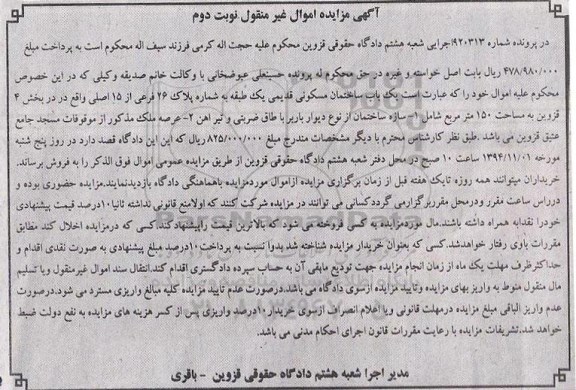 آگهی مزایده اموال غیر منقول نوبت دوم
در پرونده شماره ۹۲۰۳۱۳اجرایی شعبه هشتم دادگاه حقوقی قزوین محکوم علیه حجت اله کرمی فرزند سیف اله محکوم است به پرداخت مبلغ
۴۷۸/۹۸۰/۰۰۰ ریال بابت اصل خواسته و غیره در حق محکوم له پرونده حسینعلی عیوضخانی با وکالت خانم صدیقه وکیلی که در این خصوص
محکوم علیه اموال خود را که عبارت است یک باب ساختمان مسکونی قدیمی یک طبقه به شماره پلاک ۲۶ فرعی از ۱۵ اصلی واقع در در بخش ۴
قزوین به مساحت ۱۵۰ متر مربع شامل ۱- سازه ساختمان از نوع دیوار باربر با طاق ضربی و تیر اهن ۲-عرصه ملک مذکور از موقوفات مسجد جامع
عتیق قزوین می باشد .طبق نظر کارشناس محترم با دیگر مشخصات مندرج مبلغ ۸۲۵/۰۰۰/۰۰۰ ریال که این این دادگاه قصد دارد در روز پنج شنبه
مورخه ۱۳۹۴/۱۱/۰۱ ساعت ۱۰ صبح در محل دفتر شعبه هشتم دادگاه حقوقی قزوین از طریق مزایده عمومی اموال فوق الذکر را به فروش برساند.
خریداران میتوانند همه روزه تایک هفته قبل از زمان برگزاری مزایده ازاموال موردمزایده باهماهنگی دادگاه بازدیدنمایند.مزایده حضوری بوده و
درراس ساعت مقرر ودرمحل مقرربرگزارمی گرددکسانی می توانند در مزایده شرکت کنند که اولامنع قانونی نداشته ثانیا۱۰درصد قیمت پیشنهادی
خودرا نقدابه همراه داشته باشند.مال موردمزایده به کسی فروخته می شود که بالاترین قیمت راپیشنهادکند.کسی که درمزایده اخلال کند مطابق
مقررات باوی رفتار خواهدشد.کسی که بعنوان خریدار مزایده شناخته شد بدوا نسبت به پرداخت۱۰درصد مبلغ پیشنهادی به صورت نقدی اقدام و
حداکثرظرف مهلت یک ماه از زمان انجام مزایده جهت تودیع مابقی آن به حساب سپرده دادگستری اقدام کند.انتقال سند اموال غیرمنقول ویا تسلیم
مال منقول منوط به واریز بهای مزایده وتایید مزایده ازسوی دادگاه می باشد.درصورت عدم تایید مزایده کلیه مبالغ واریزی مسترد می شود.درصورت
عدم واریز الباقی مبلغ مزایده درمهلت قانونی ویا اعلام انصراف ازسوی خریدار ۱۰درصد واریزی پس از کسر هزینه های مزایده به نفع دولت ضبط
خواهد شد.تشریفات مزایده با رعایت مقررات قانون اجرای احکام مدنی می باشد.
مدیر اجرا شعبه هشتم دادگاه حقوقی قزوین - باقری
ParsNamadData